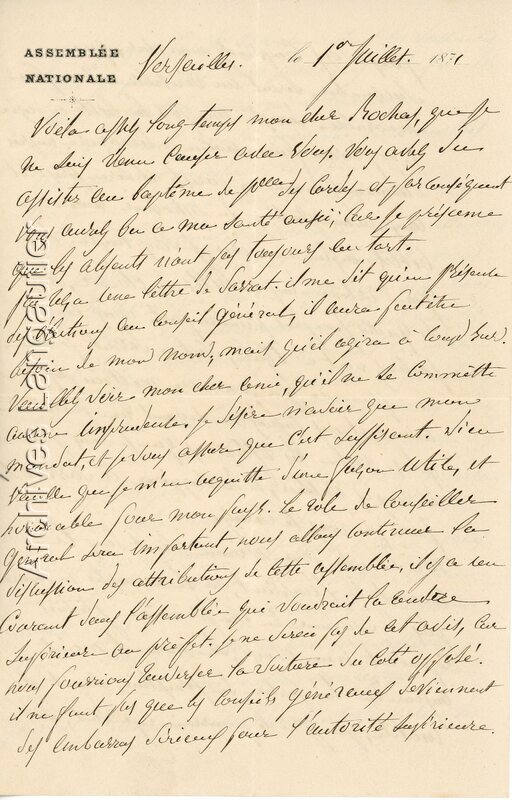 ASSEMBLÉE
NATIONALE
Versailles. le 1er Juillet. 1871
Voilà assez long temps mon cher Rochas, que je
ne suis venu causer avec vous. Vous avez du
assister au baptême de des Cordes et par conséquent
vous aurez bu a ma santé aussi; car je présume
que les absents n'ont pas toujours eu tort.
J'ai une lettre de Sarrat. il me dit qu'en présence
des élections au Conseil général, il aura peut être
besoin de mon nom, mais qu'il agira à coup sur.
Veuillez dire mon cher ami, qu'il ne se commette
aucune imprudence. Je désire n'avoir que mon
mandat, et je vous assure que c'est suffisant. Dieu
veuille que je m'en acquitte d'une façon utile, et
honorable pour mon pays. Le role de Conseiller
général sera important, nous allons continuer la
discussion des attributions de cette assemblée, il y a un
courant dans l'assemblée qui voudrait la rendre
supérieure au préfet. Je ne serai pas de cet avis, car
nous pourrions renverser la voiture du coté opposé.
il ne faut pas que les conseils généraux deviennent
des embarras sérieux pour l'autorité supérieure.
Archives Langautier